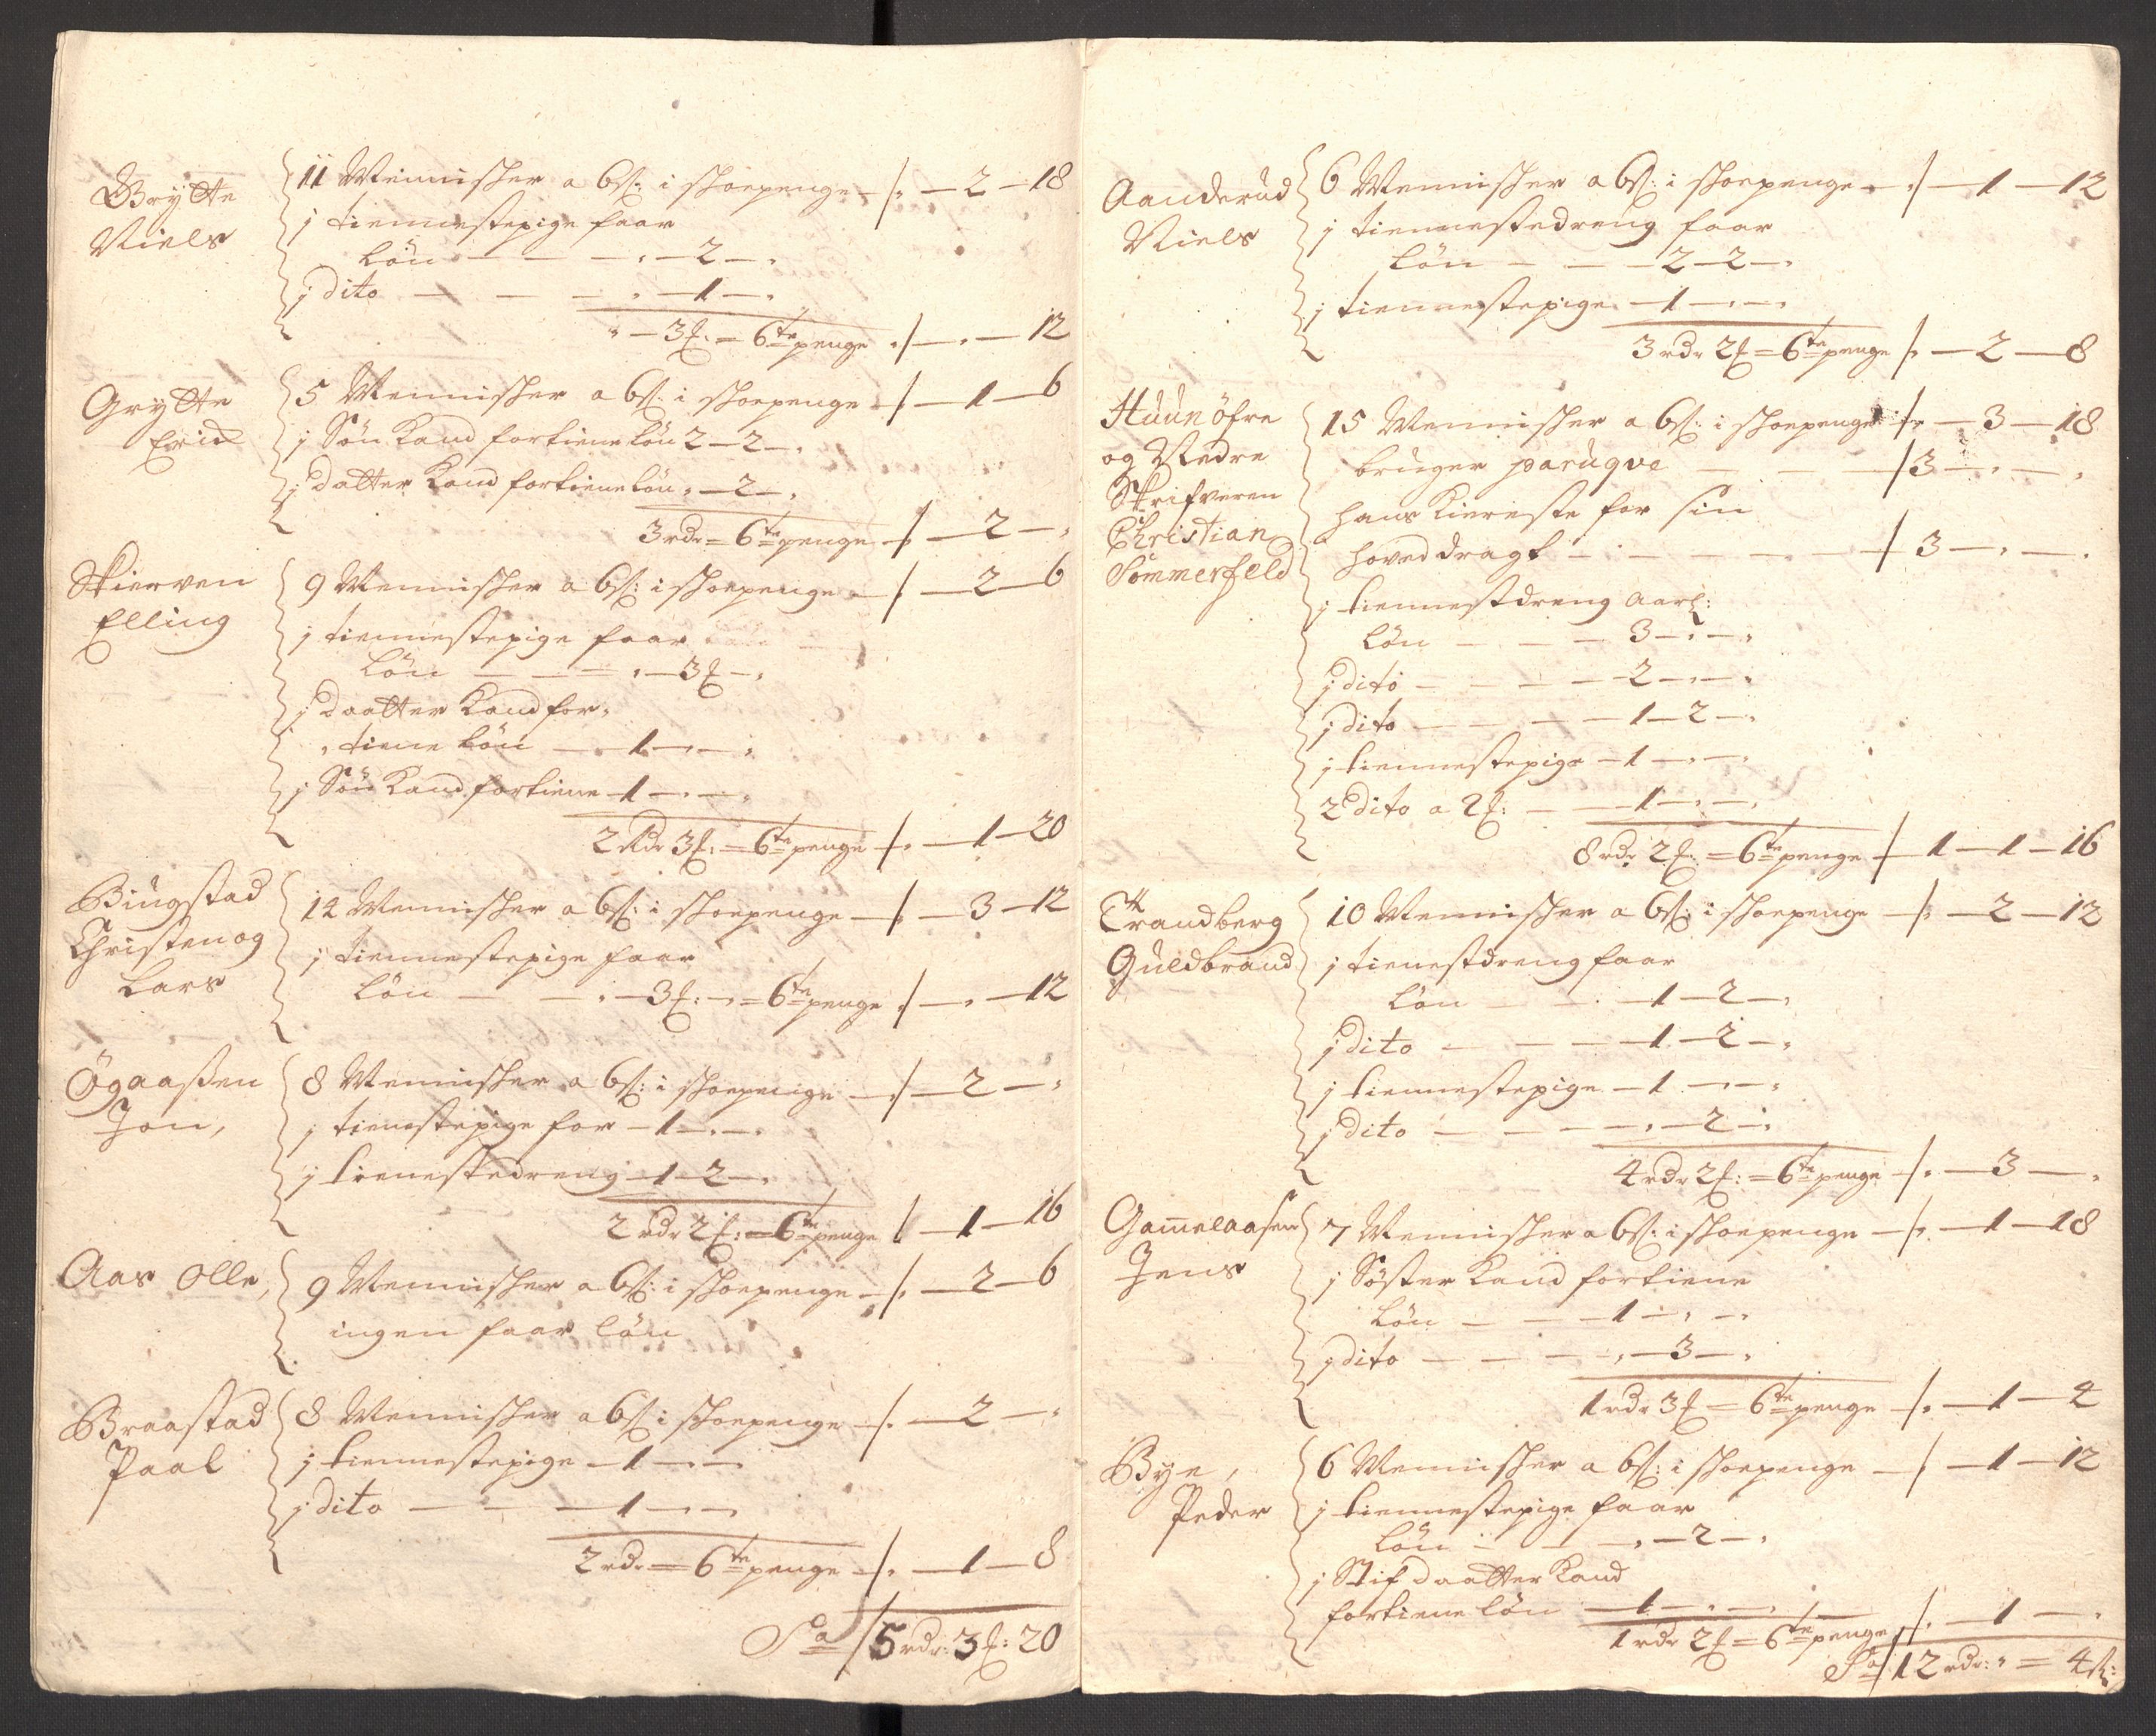 Grytte Niels
11 Mennisker a 6ß: i skoepenge ./. — 2 — 18
j tiennestepige faar
løn — — — . — 2 — .
j dito — — — . — 1 — .
. — 3 ß: = 6te penge ./. — . — 12
Grytte Erich
5 Mennisker a 6ß: i skoepenge ./. — 1 — 6
j Søn Kand fortiene løn 2 — 2 — .
j datter Kand fortiene løn . — 2 — .
3 rdr = 6te penge ./. — 2 — .
Skierven Elling
9 Mennisker a 6ß: i skoepenge ./. — 2 — 6
j tiennestepige faar
løn — — — . — 3 ß — .
j daatter Kand for=
=tiene løn — 1 — . — .
j Søn Kand fortiene — 1 — . — .
2 Rdr 3 ß: = 6te penge ./. — 1 — 20
Bingstad Christen og Lars
14 Mennisker a 6ß: i skoepenge ./. — 3 — 12
j tiennestepige faar
løn — — . — 3 ß: — . = 6te penge ./. — . — 12
Øgaaßen Jon,
8 Mennisker a 6ß: i skoepenge ./. — 2 — .
j tienestepige for — 1 — . — .
j tienestedreng — 1 — 2 — .
2 rdr 2 ß: = 6te penge ./. — 1 — 16
Aas Olle,
9 Mennisker a 6ß: i skoepenge ./. — 2 — 6
ingen faar løn
Braastad Paal
8 Mennisker a 6ß i skoepenge ./. — 2 — .
j tiennestepige — 1 — . — .
j dito — — — 1 — . — .
2 rdr = 6te penge ./. — 1 — 8
Sa 5 rdr: 3 ß: 20
Aanderud Niels
6 Mennisker a 6ß: i skoepenge ./. — 1 — 12
j tiennestedreng faar
løn — — — 2 — 2 — .
j tiennestepige — 1 — . — .
3 rdr 2 ß = 6te penge ./. — 2 — 8
Huun öfre og Nedre Skrifveren Christian Sommerfeld
15 Mennisker a 6ß: i skoepenge ./. — 3 — 18
bruger paruqve — — — / 3 — . — .
hans Kiereste for sin
hoveddragt — — — — / 3 — . — .
j tiennestdreng aarl:
løn — — — 3 — . — .
j dito — — — 2 — . — .
j dito — — — 1 — 2 — .
j tiennestepige — 1 — . — .
2 dito a 2 ß: — — 1 — . — .
8 rdr 2 ß: = 6te penge / 1 — 1 — 16
Trandberg Guldbrand
10 Mennisker a 6ß: i skoepenge ./. — 2 — 12
j tienestdreng faar
løn — — . — 1 — 2 — .
j dito — — — 1 — 2 — .
j tiennestepige — 1 — . — .
j dito — — — . — 2 — .
4 rdr 2 ß: = 6te penge ./. — 3 — .
Gamelaasen Jens
7 Mennisker a 6ß: i skoepenge ./. — 1 — 18
j Søster Kand fortiene
løn — — — 1 — . — .
j dito — — — . — 3 — .
1 rdr 3 ß = 6te penge ./. — 1 — 4
Bye, Peder
6 Mennisker a 6ß: i skoepenge ./. — 1 — 12
j tiennestepige faar
løn — — — . — 2 — .
j Stif daatter Kand
fortiene løn — 1 — . — .
1 rdr 2 ß = 6te penge ./. — 1 — .
Sa 12 rdr: . = 4 ß: